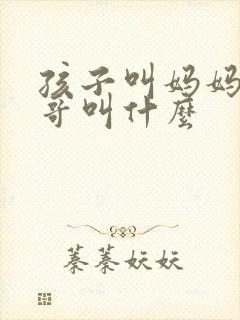 孩子叫妈妈
哥叫什麼
蓁蓁妖妖